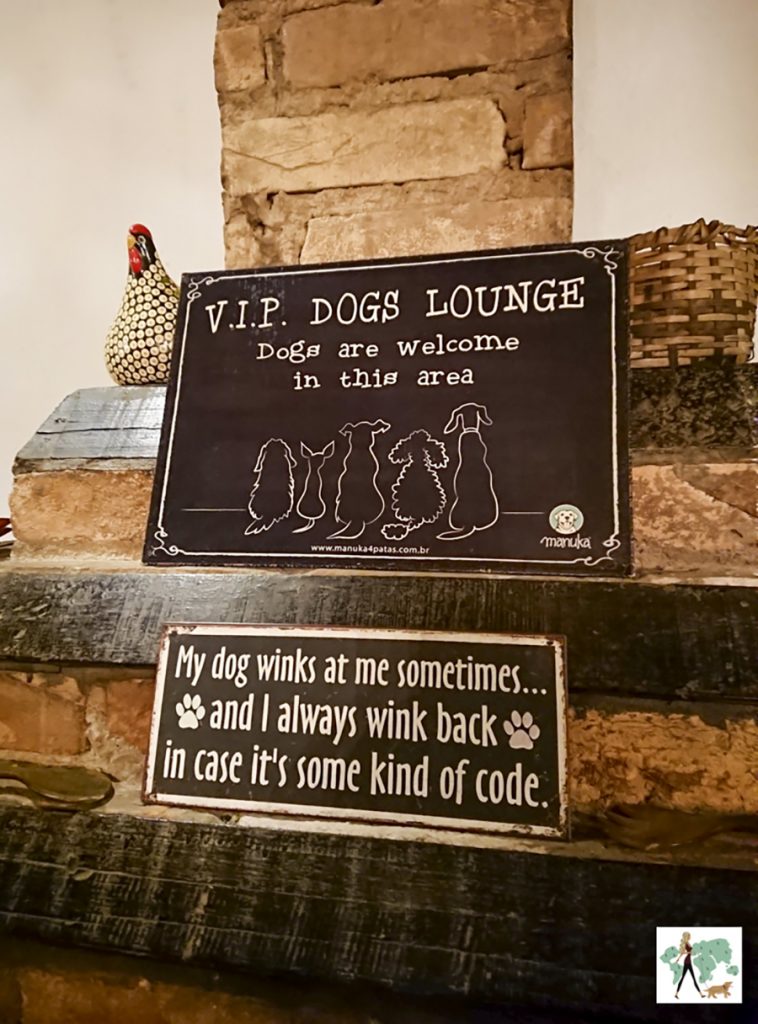 V.I.P. DOGS LOUNGE
Dogs are welcome
in this area
manuka
www.manuka4patas.com.br
My dog winks at me sometimes...
and I always wink back
in case it's some kind of code.